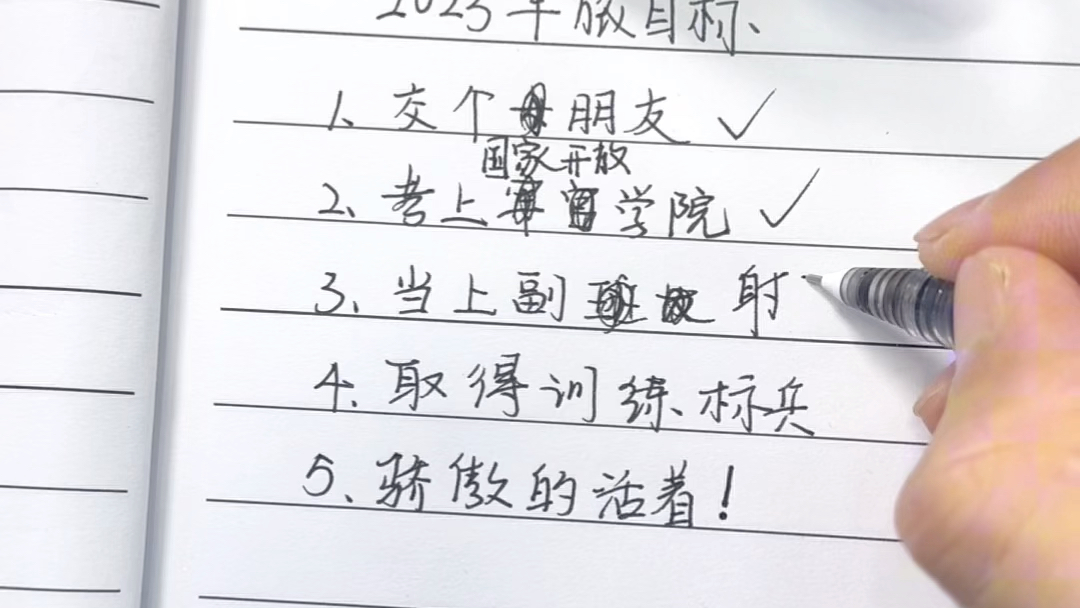 2023年服目标、
1、交个朋友✓
国家开放
2、考上学院✓
3、当上副射
4、取得训练、标兵
5、骄傲的活着!